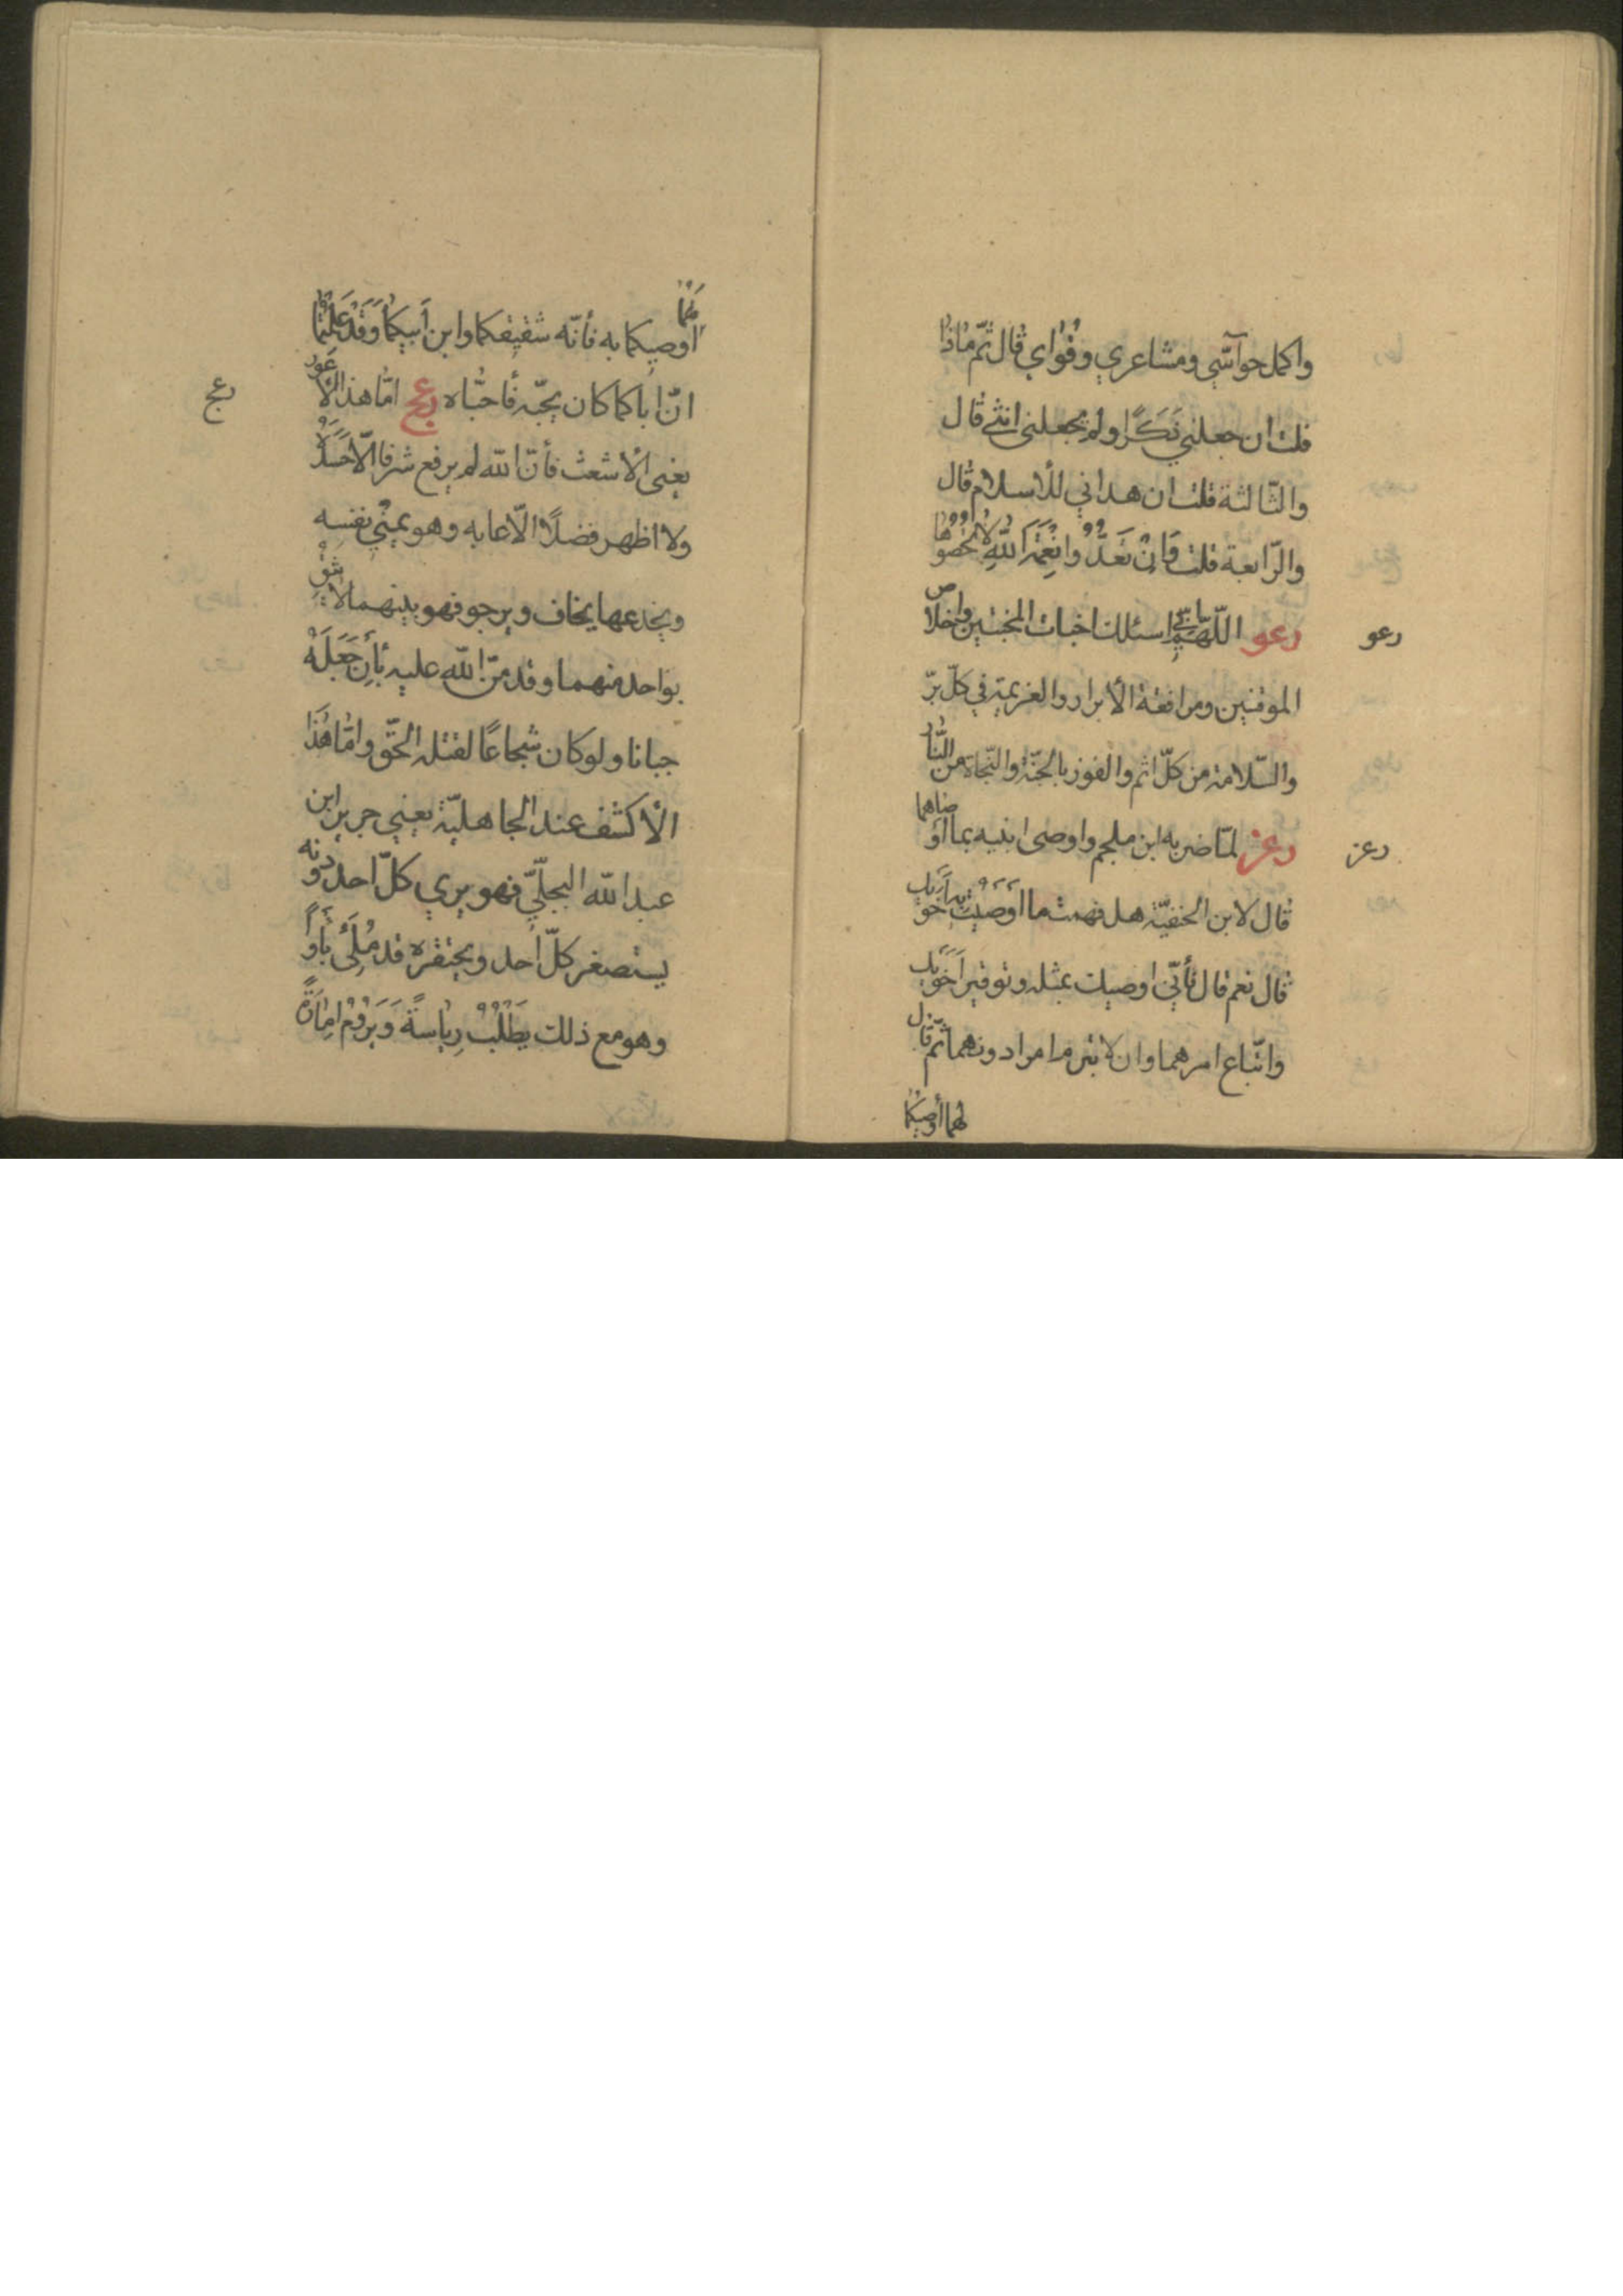 واكمل حواسّي ومشاعري وقواي قال ثمّ ماذا
قلت ان جعلني ذكرًا ولم يجعلني انثى قال
والثّالثة قلت ان هداني للأسلام قال
والرّابعة قلت وَاِنْ تَعُدُّوا نِعْمَةَ اللّٰهِ لا تُحْصُوهَا
رعو
رعو اللّهمّ انّي اسئلك اخبات المخبتين واخلاص
الموقنين ومرافقة الأبرار والعزيمة في كلّ برّ
والسّلامة من كلّ اثم والفوز بالجنّة والنّجاة من النّار
رعز
رعز لمّا ضربه ابن ملجم واوصى ابنيه بما اوصاهما
قال لابن الحنفيّة هل فهمت ما اَوْصَيْتُ به اَخَوَيك
قال نعم قال فأنّي اوصيك بمثله وتوقير اَخَوَيك
واتّباع امرهما وان لا تبرم امرا دونهما ثمّ قال
لهما أوصيكما
اوصيكما به فأنّه شقيقكما وابن اَبيكما وَقَدْ عَلِمْتُما
انّ اباكما كان يحبّه فأحبّاه رعح امّا هذا الأعور
رعح
يعني الأشعث فأنّ اللّٰه لم يرفع شرفا الّا حَسَدَهُ
ولا اظهر فضلًا الّا عابه وهو يمنّي نفسه
ويخدعها يخاف ويرجو فهو بينهما لا يَثِقُ
بواحد منهما وقد منّ اللّٰه عليه بأن جَعَلَهُ
جبانا ولو كان شجاعًا لقتله الحقّ وامّا هٰذَا
الأكشف عند الجاهليّة يعني جرير ابن
عبد اللّٰه البجليّ فهو يرى كلّ احد دونه
يستصغر كلّ احد ويحتقره قد مُلِئَ
وهو مع ذلك يَطْلُبُ رِيٰاسةً وَيَرُومُ اِمٰارَةً